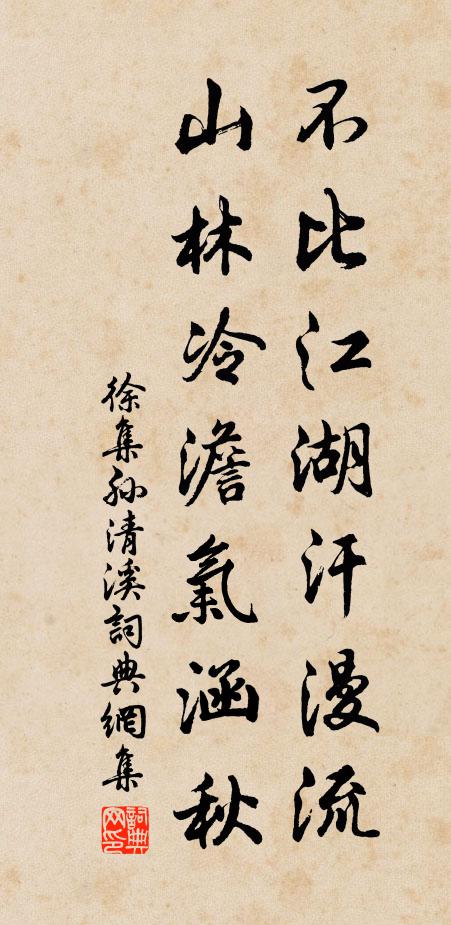 不比江湖汗漫流
山林冷澹氣涵秋
徐集孙清溪詞典網集
詞典网印